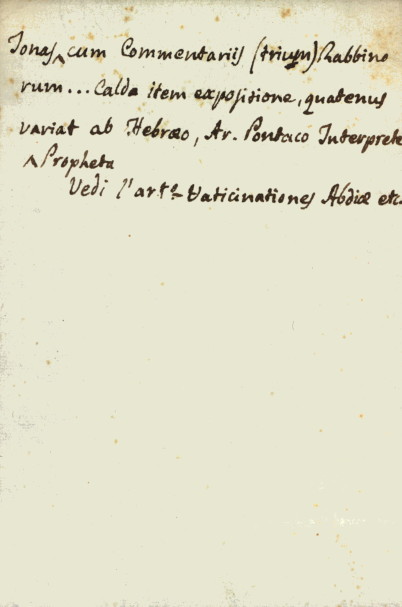 Jonas ^ cum Commentariis (trium) Rabbino
rum... Calda item expositione, quatenus
variat ab Hebræo, Ar. Pontaco Interprete
^ Propheta
Vedi l'art.º Vaticinationes Abdiæ etc.